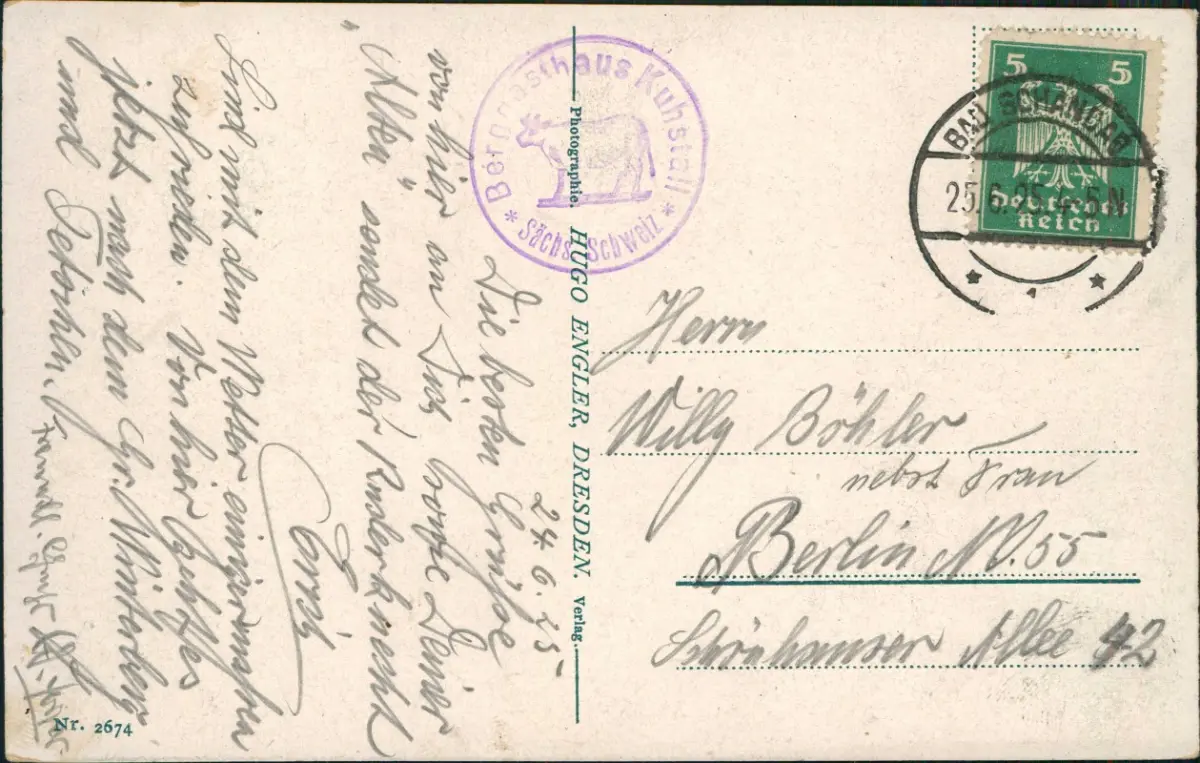 24.6.25
Die besten Grüße
von hier an Dich sowie Deiner
„Alten“ sendet der Ruderknecht
Sind mit dem Wetter einigermaßen
zufrieden. Von hier geht es
jetzt nach dem Gr. Winterberg
und Tetschen.
Freundl. Grüße
Berggasthaus Kuhstall
* Sächs. Schweiz *
Photographie. HUGO ENGLER, DRESDEN. Verlag.
Nr. 2674
5 5
Deutsches
Reich
BAD SCHANDAU
25.6.25. 4-5 N
* 1 *
Herrn
Willy Böhler
nebst Frau
Berlin NO. 55
Schönhauser Allee 42